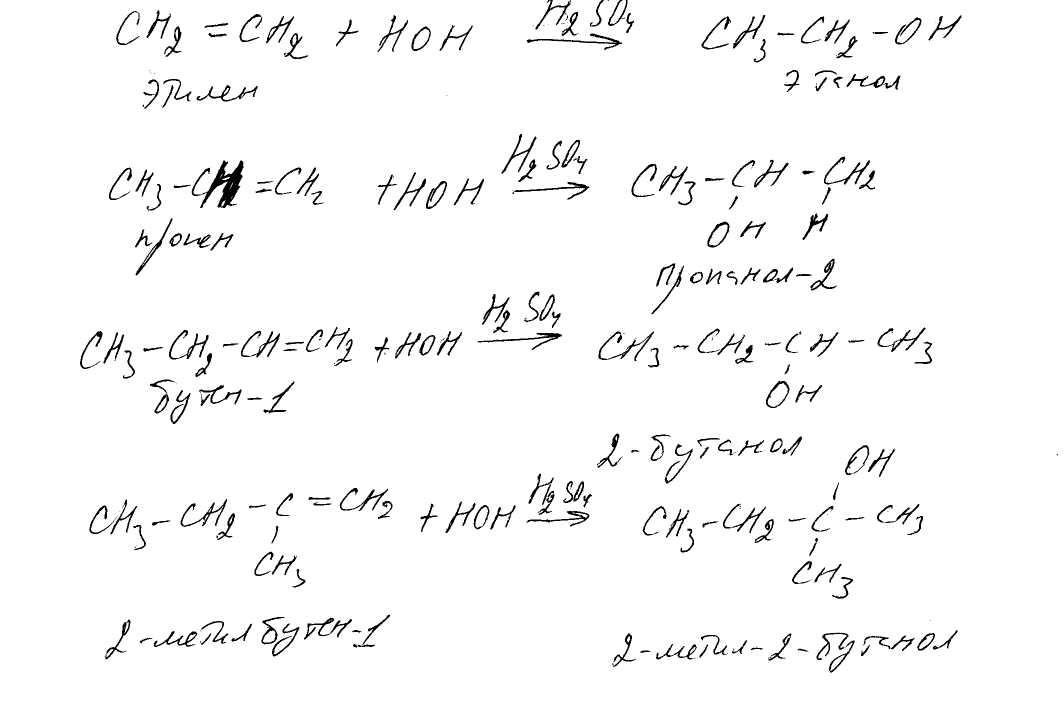 CH2 = CH2 + HOH H2SO4 CH3 - CH2 - OH
этилен этанол
CH3 - CH = CH2 + HOH H2SO4 CH3 - CH - CH2
OH H
пропен
пропанол-2
CH3 - CH2 - CH = CH2 + HOH H2SO4 CH3 - CH2 - CH - CH3
OH
бутен-1
2-бутанол
OH
CH3 - CH2 - C = CH2 + HOH H2SO4 CH3 - CH2 - C - CH3
CH3 CH3
2-метилбутен-1 2-метил-2-бутанол